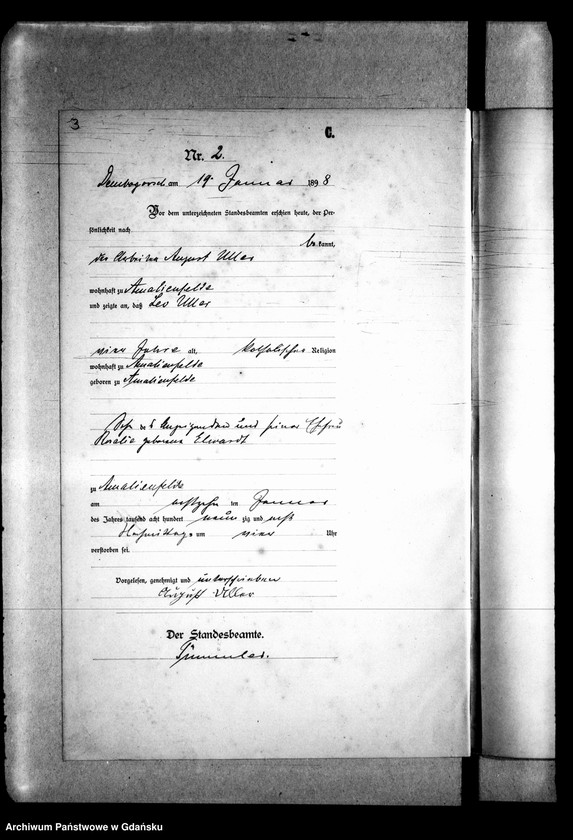 3
C.
Nr. 2.
Dembogorsch am 19. Januar 1898
Vor dem unterzeichneten Standesbeamten erschien heute, der Per-
sönlichkeit nach
be kannt,
der Arbeiter August Uller
wohnhaft zu Amalienfelde
und zeigte an, daß Leo Uller
vier Jahre alt, katholischer Religion
wohnhaft zu Amalienfelde
geboren zu Amalienfelde
Sohn des Anzeigenden und seiner Ehefrau
Rosalie geborene Elwardt
zu Amalienfelde
am achtzehn ten Januar
des Jahres tausend acht hundert neun zig und acht
Nachmittags um vier Uhr
verstorben sei.
Vorgelesen, genehmigt und unterschrieben
August Uller
Der Standesbeamte.
Archiwum Państwowe w Gdańsku